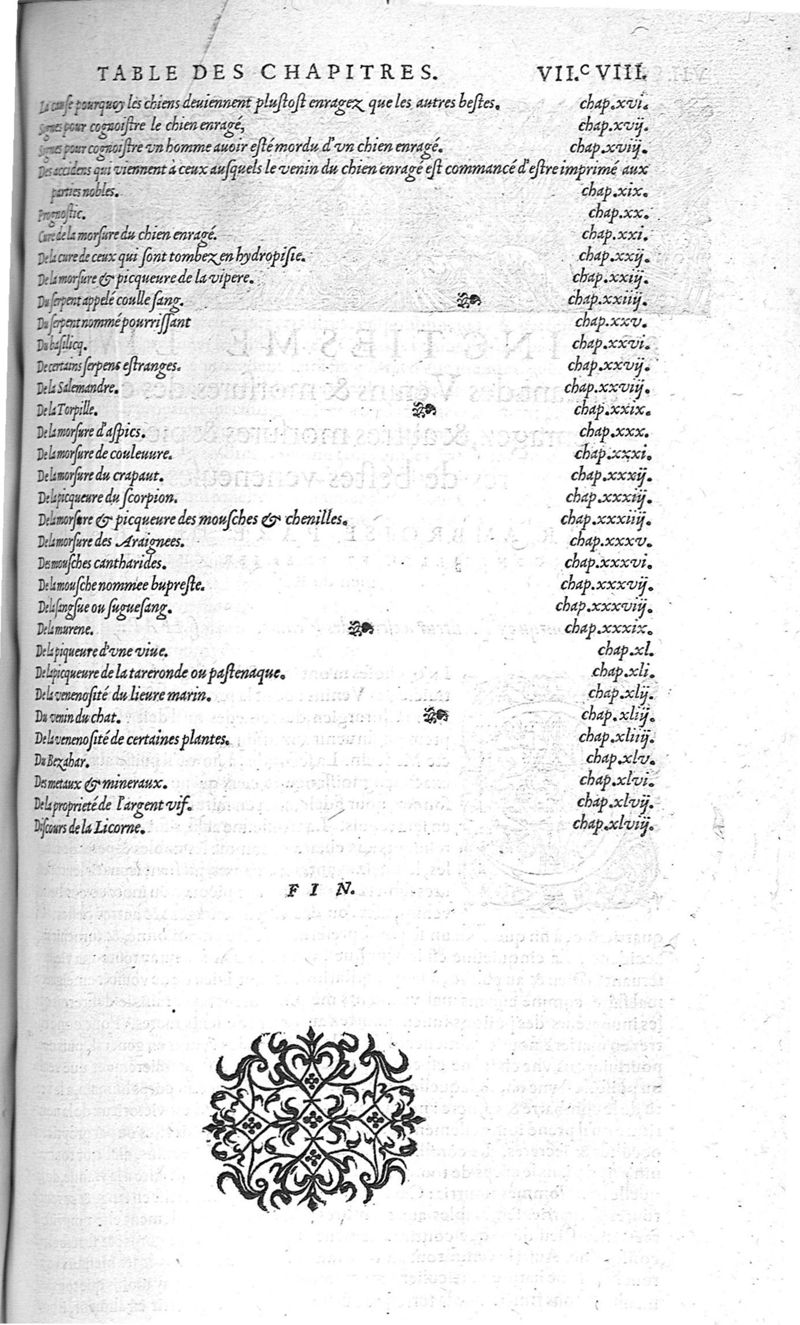 TABLE DES CHAPITRES. VII.C VIII.
La cause pourquoy les chiens deuiennent plustost enragez que les autres bestes. chap.xvi.
Signes pour cognoistre le chien enragé, chap.xvij.
Signes pour cognoistre vn homme auoir esté mordu d'vn chien enragé. chap.xviij.
Des accidens qui viennent à ceux ausquels le venin du chien enragé est commancé d'estre imprimé aux
parties nobles. chap.xix.
Prognostic. chap.xx.
Cure de la morsure du chien enragé. chap.xxi.
De la cure de ceux qui sont tombez en hydropisie. chap.xxij.
De la morsure & picqueure de la vipere. chap.xxiij.
Du serpent appelé coulle sang. chap.xxiiij.
Du serpent nommé pourrissant chap.xxv.
Du basilicq. chap.xxvi.
De certains serpens estranges. chap.xxvij.
De la Salemandre. chap.xxviij.
De la Torpille. chap.xxix.
De la morsure d'aspics. chap.xxx.
De la morsure de couleuure. chap.xxxi.
De la morsure du crapaut. chap.xxxij.
De la picqueure du scorpion. chap.xxxiij.
De la morsure & picqueure des mousches & chenilles. chap.xxxiiij.
De la morsure des Araignees. chap.xxxv.
Des mousches cantharides. chap.xxxvi.
De la mousche nommee bupreste. chap.xxxvij.
De la sangsue ou suguesang. chap.xxxviij.
De la murene. chap.xxxix.
De la piqueure d'vne viue. chap.xl.
De la picqueure de la tareronde ou pastenaque. chap.xli.
De la venenosité du lieure marin. chap.xlij.
Du venin du chat. chap.xliij.
De la venenosité de certaines plantes. chap.xliiij.
Du Bezahar. chap.xlv.
Des metaux & mineraux. chap.xlvi.
De la proprieté de l'argent vif. chap.xlvij.
Discours de la Licorne. chap.xlviij.
FIN.